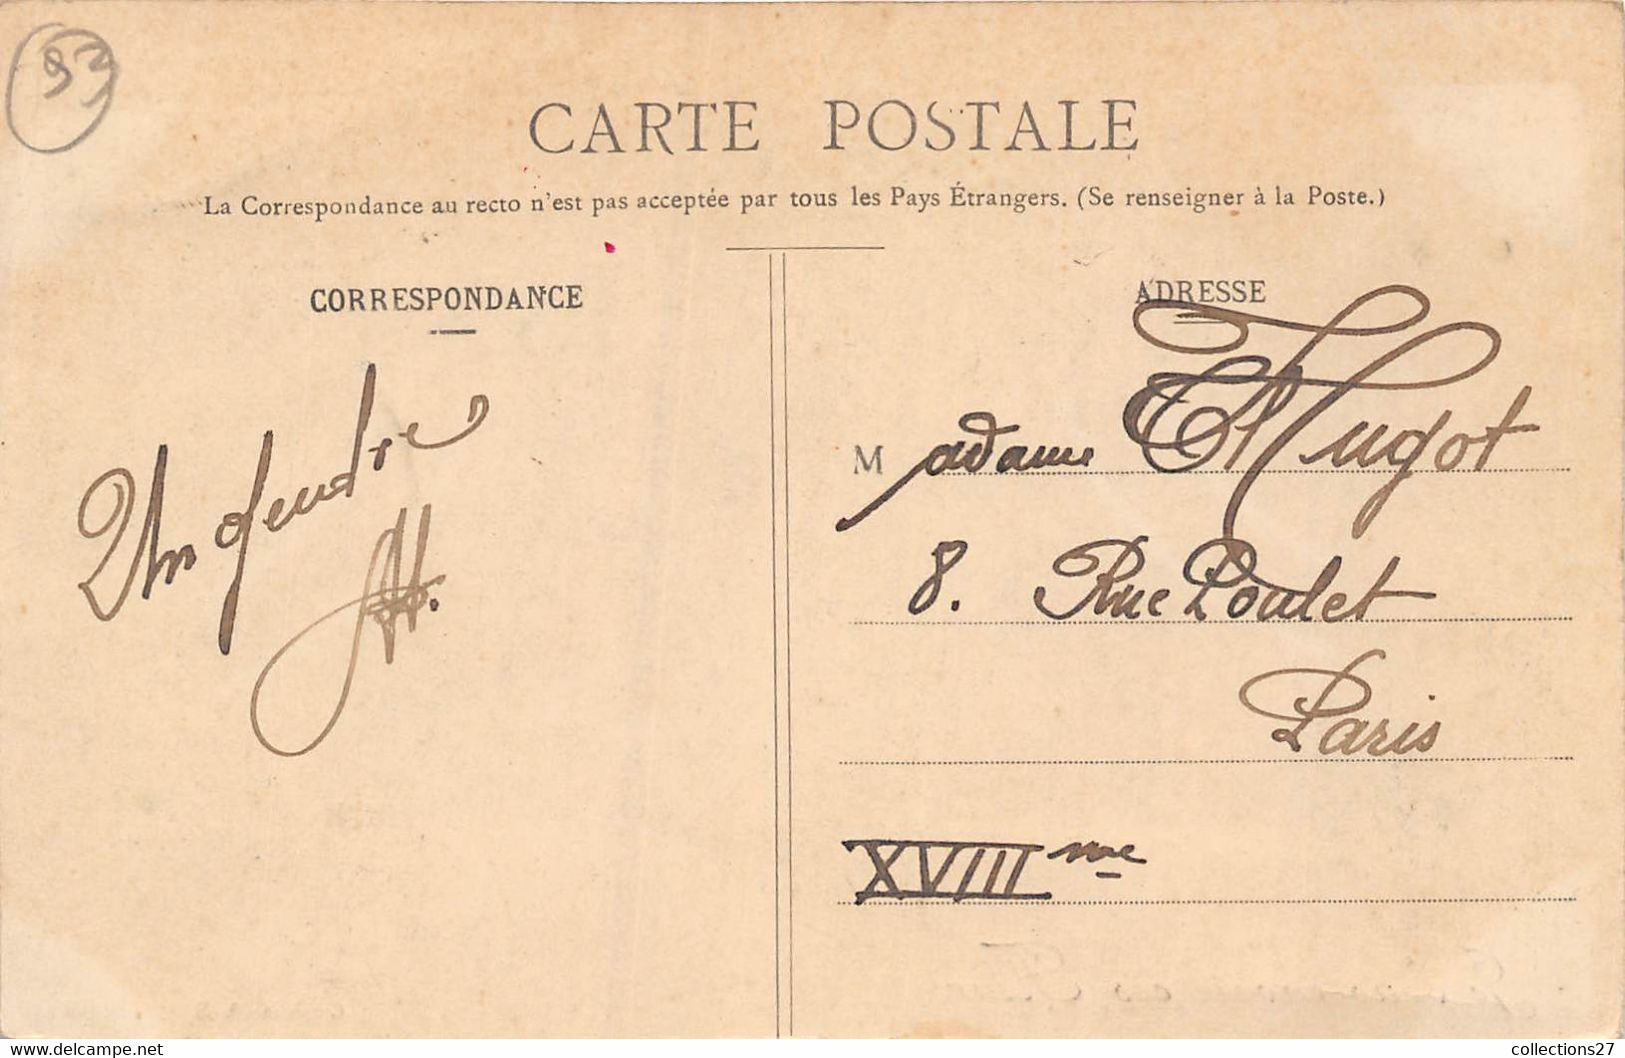 93
CARTE POSTALE
La Correspondance au recto n'est pas acceptée par tous les Pays Étrangers. (Se renseigner à la Poste.)
CORRESPONDANCE
Un gendre
AH.
ADRESSE
Madame Th Hugot
8. Rue Poulet
Paris
XVIII me
collections27